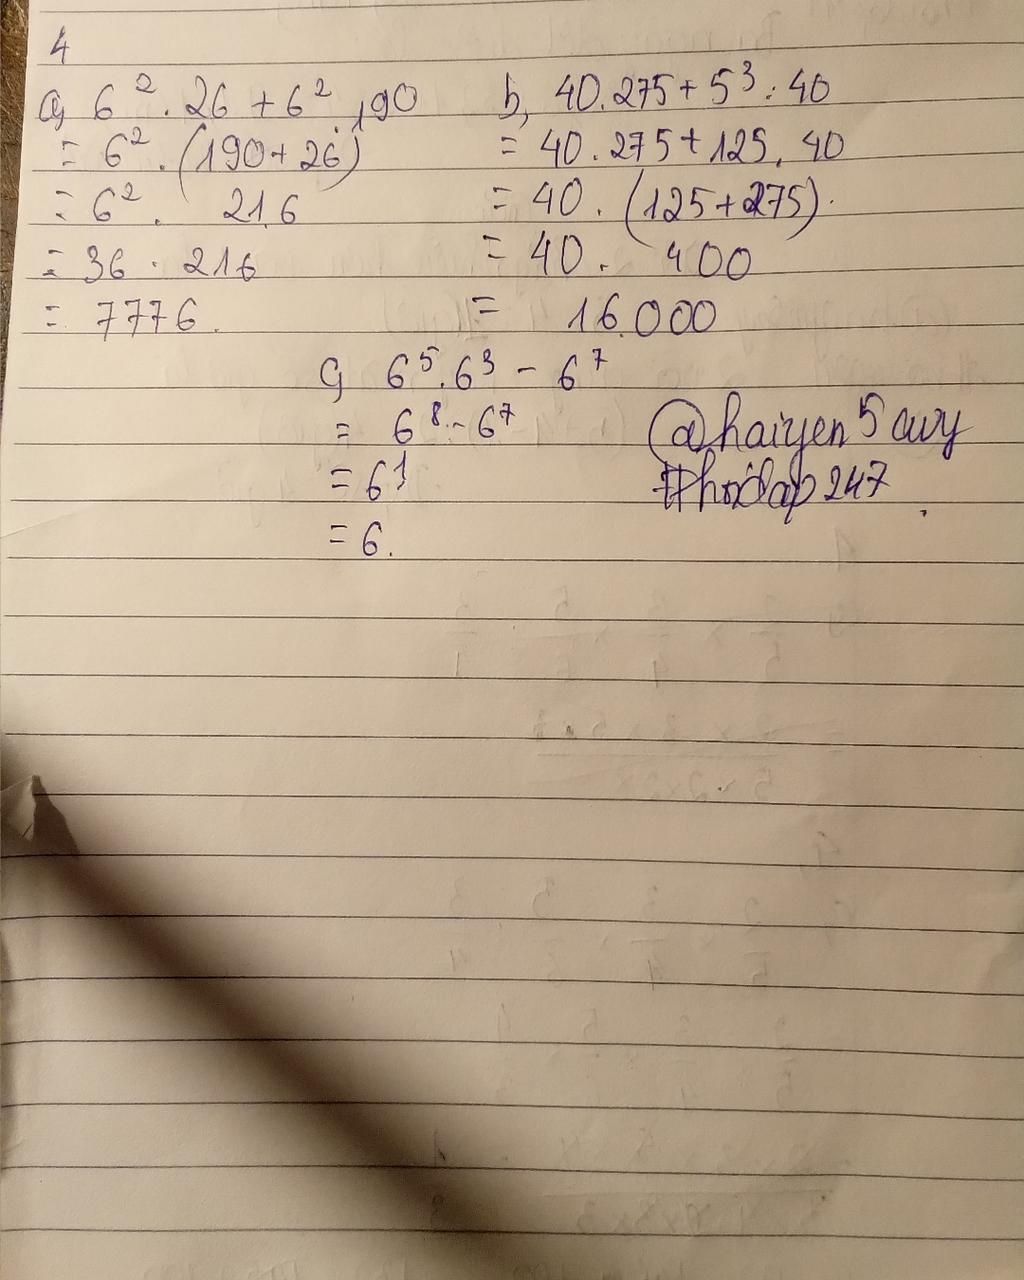 4
a, 6² . 26 + 6² . 190
= 6² . (190 + 26)
= 6² . 216
= 36 . 216
= 7776.
b, 40.275 + 5³ . 40
= 40.275 + 125. 40
= 40 . (125 + 275).
= 40 . 400
= 16.000
c, 6⁵.6³ - 6⁷
= 6⁸ - 6⁷
= 6¹
= 6.
@haiyen5cwy
#hoidap247